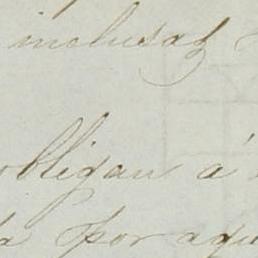 inclusas
obligan á
por aqu